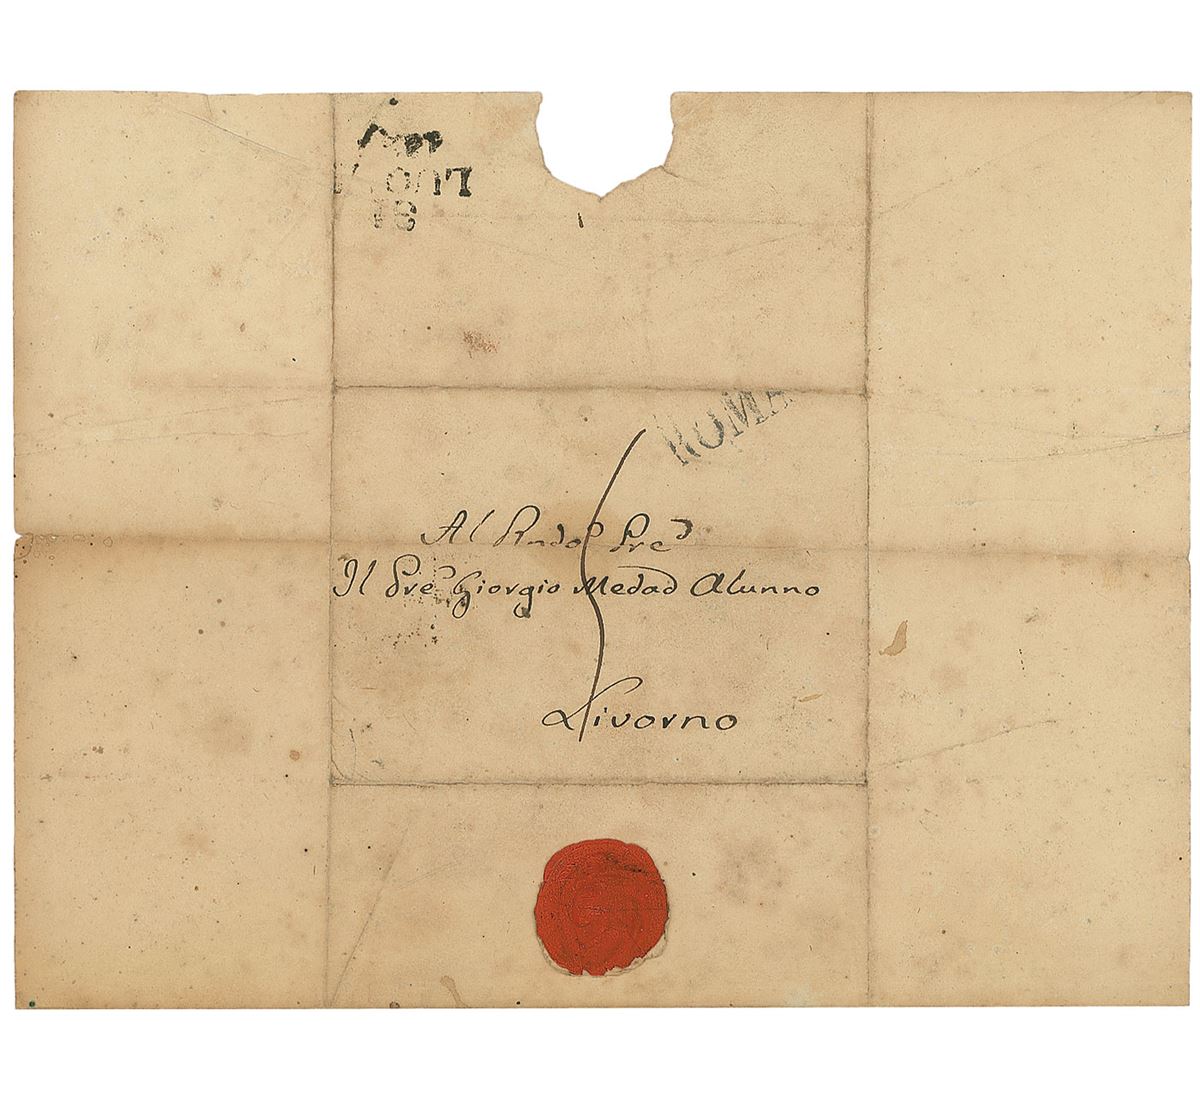 ROMA
Al Rndo Pre
Il Pre Giorgio Medad Alunno
Livorno
18